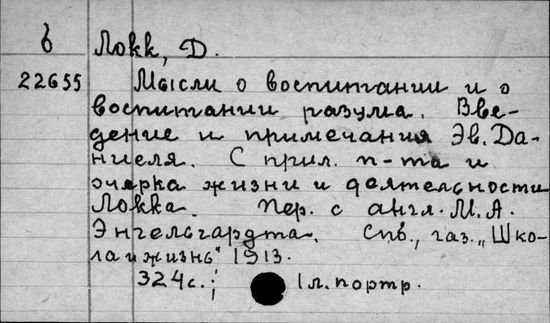 6 Локк, Д.
22655 Мысли о воспитании и о
воспитании разума. Вве-
дение и примечания Эв. Да-
ниеля. С прил. п-та и
очерка жизни и деятельности
Локка. Пер. с англ. М.А.
Энгельгардта. Спб., газ. „Шко-
ла и жизнь" 1913.
324с.; 1 л. портр.